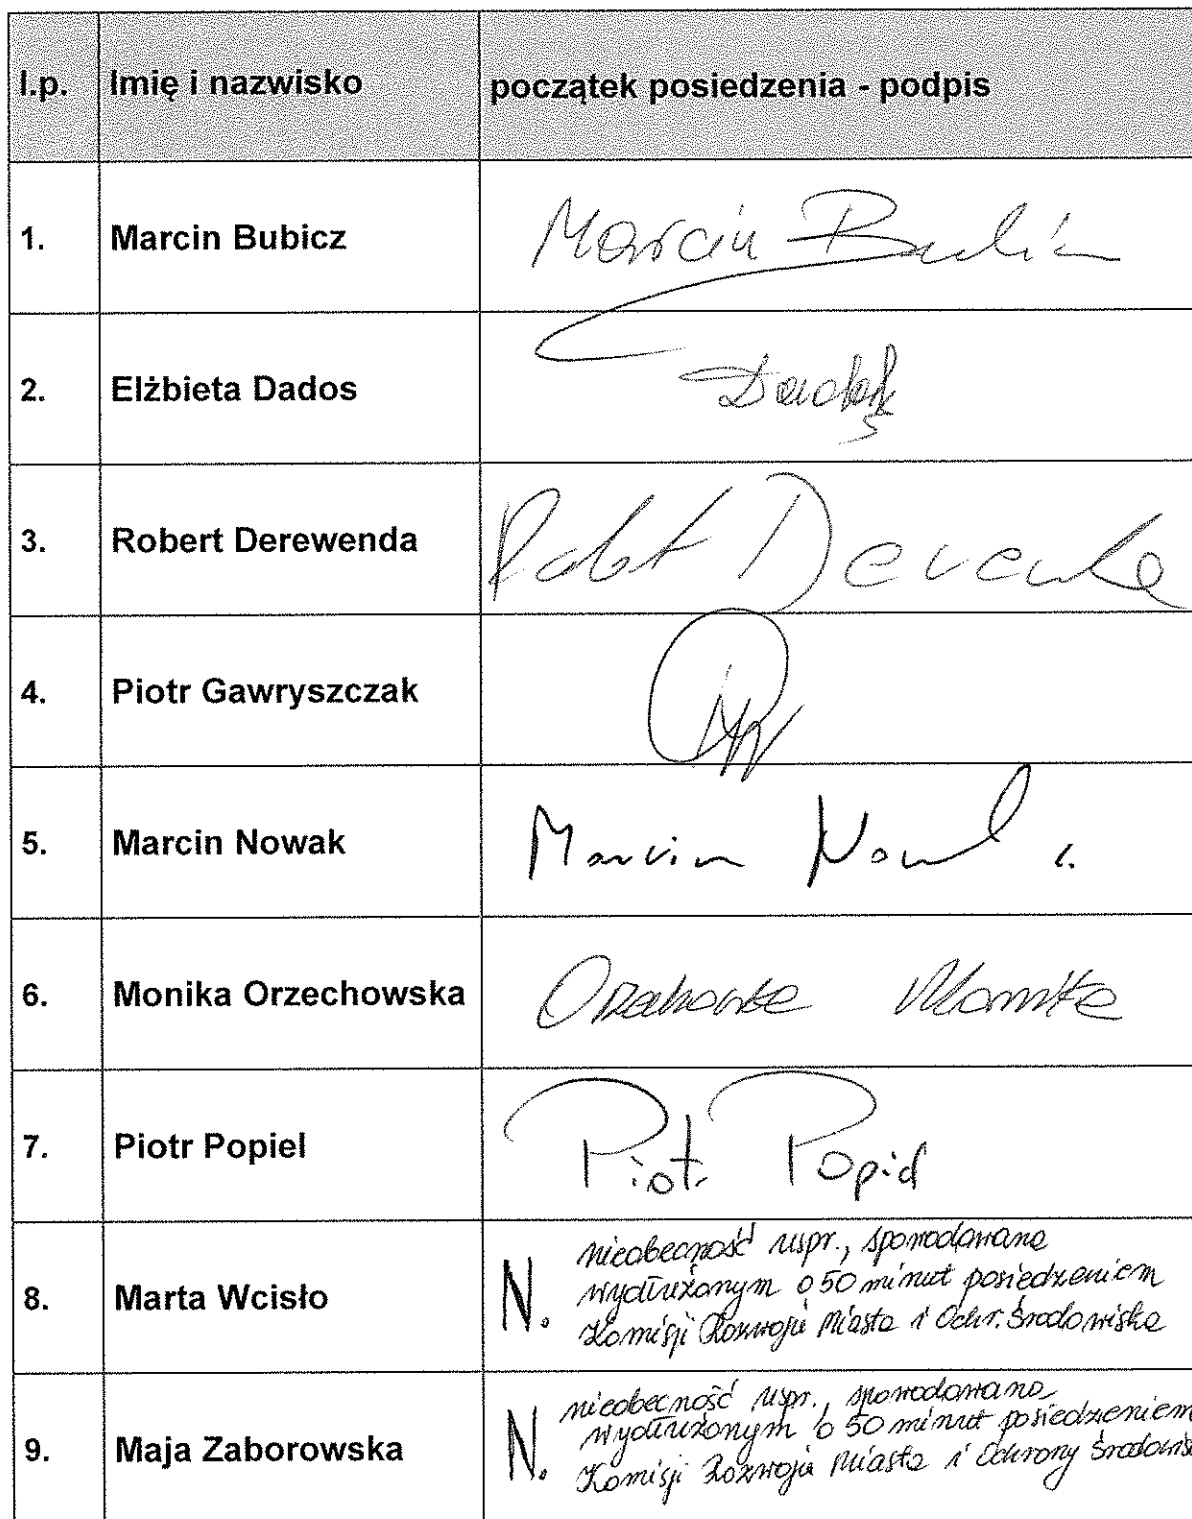 l.p. Imię i nazwisko początek posiedzenia - podpis
1. Marcin Bubicz Marcin
2. Elżbieta Dados
3. Robert Derewenda Robert Derewenda
4. Piotr Gawryszczak
5. Marcin Nowak Marcin Nowak
6. Monika Orzechowska Orzechowska Monika
7. Piotr Popiel Piotr Popiel
nieobecność uspr., spowodowana
8. Marta Wcisło N. wydłużonym o 50 minut posiedzeniem
Komisji Rozwoju Miasta i Ochr. Środowiska
nieobecność uspr., spowodowana
9. Maja Zaborowska N. wydłużonym o 50 minut posiedzeniem
Komisji Rozwoju Miasta i Ochrony Środowis